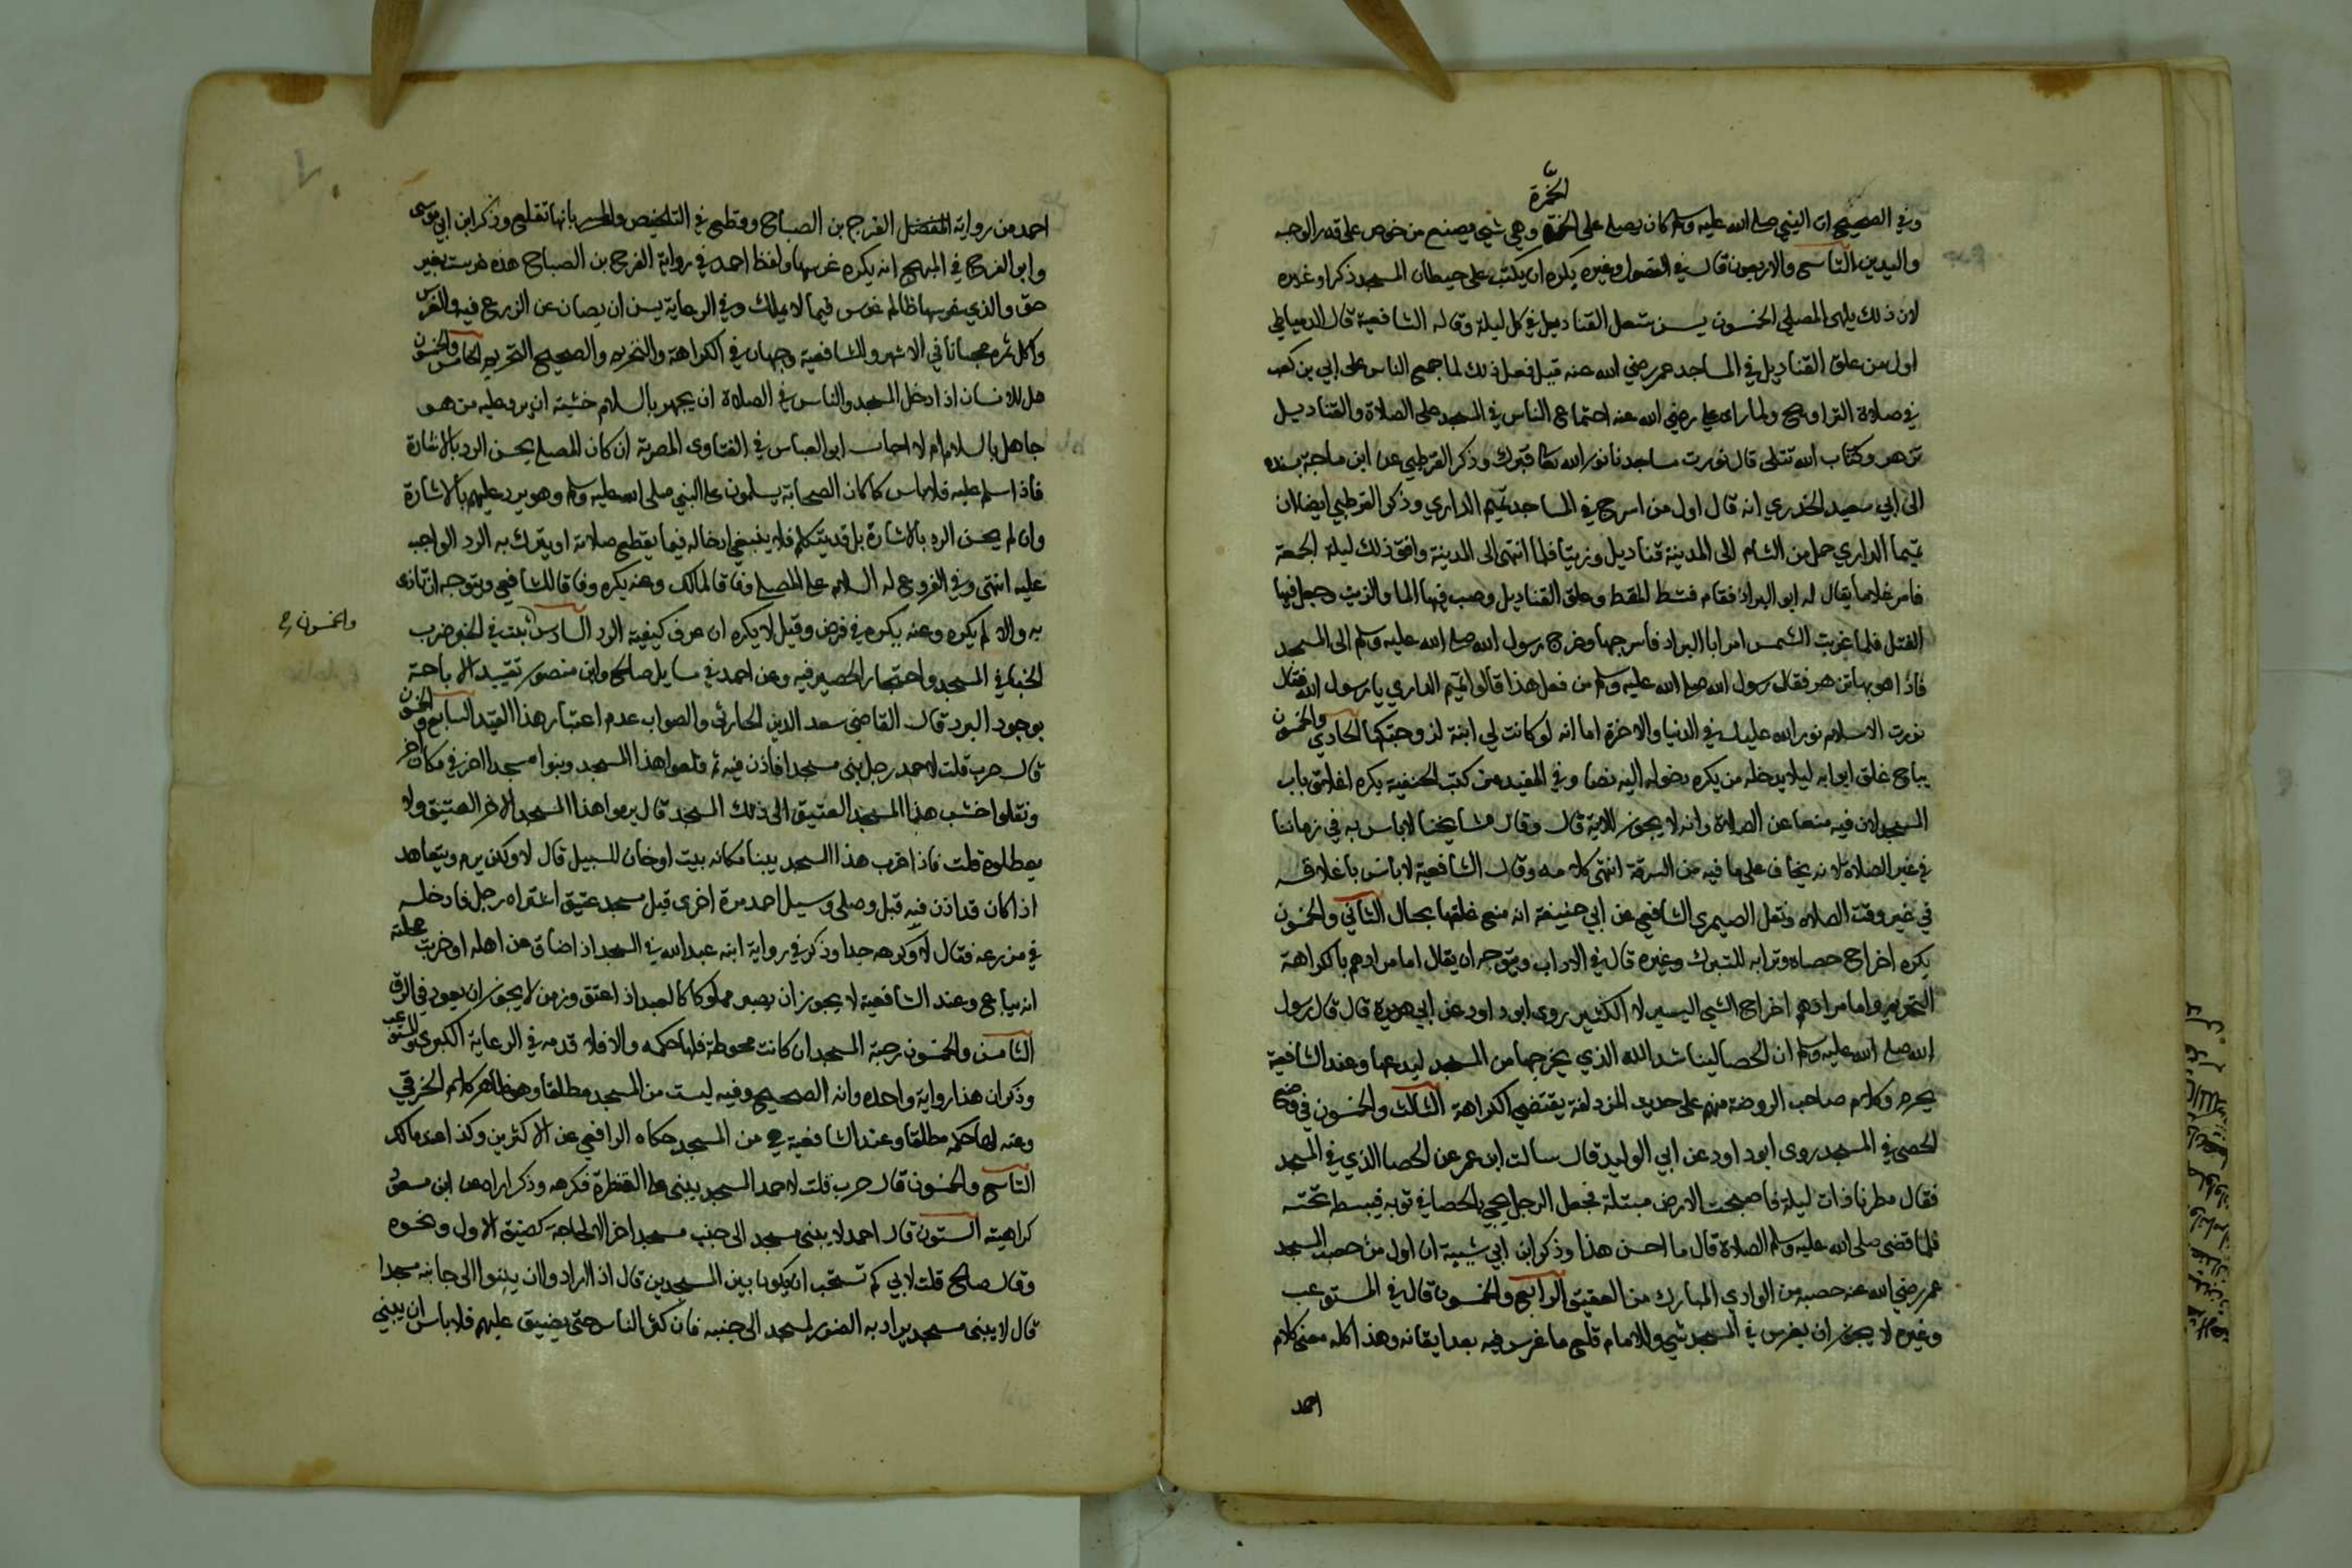 الخمرة
وفي الصحيح ان النبي صلى الله عليه وسلم كان يصلي على الخمرة وهي شي يصنع من خوص على قدر الوجه
واليدين التاسع والاربعون قال في الفصول وغيره يكره ان يكتب على حيطان المسجد ذكرا وغيره
لان ذلك يلهي المصلي الخمسون يسن شعل القناديل في كل ليلة وقاله الشافعية قال الدمياطي
اول من علق القناديل في المساجد عمر رضي الله عنه قيل فعل ذلك لما جمع الناس على ابي بن كعب
في صلاة التراويح ولما راى علي رضي الله عنه اجتماع الناس في المسجد على الصلاة والقناديل
تزهر وكتاب الله تتلى قال نورت مساجدنا نور الله قبرك وذكر القرطبي عن ابن ماجة بسنده
الى ابي سعيد الخدري انه قال اول من اسرج في المساجد تميم الداري وذكر القرطبي ايضا ان
تميما الداري حمل من الشام الى المدينة قناديل وزيتا فلما انتهى الى المدينة وافق ذلك ليلة الجمعة
فامر غلاما يقال له ابو البراد فقام فشط المقط وعلق القناديل وصب فيها الما والزيت وجعل فيها
الفتل فلما غربت الشمس امر ابا البراد فاسرجها وخرج رسول الله صلى الله عليه وسلم الى المسجد
فاذا هو بها تزهر فقال رسول الله صلى الله عليه وسلم من فعل هذا قالوا تميم الداري يا رسول الله فقال
نورت الاسلام نور الله عليك في الدنيا والاخرة اما انه لو كانت لي ابنة لزوجتكها الحادي والخمسون
يباح غلق ابوابه ليلا يدخله من يكره دخوله اليه نصا وفي المفيد من كتب الحنفية يكره اغلاق باب
المسجد لان فيه منعا عن الصلاة وانه لا يجوز للاية قال وقال مشايخنا لا باس به في زماننا
في غير الصلاة لانه يخاف على ما فيه من السرقة انتهى كلامه وقال الشافعية لا باس باغلاقه
في غير وقت الصلاة ونقل الصيمري الشافعي عن ابي حنيفة انه منع غلقها بحال الثاني والخمسون
يكره اخراج حصاه وترابه للتبرك وغيره قال في الاداب ويتوجه ان يقال اما مرادهم بالكراهة
التحريم واما مرادهم اخراج الشي اليسير لا الكثير روى ابو داود عن ابي هريرة قال قال رسول
الله صلى الله عليه وسلم ان الحصا ليناشد الله الذي يخرجها من المسجد ليدعها وعند الشافعية
يحرم وكلام صاحب الروضة منهم على حديث المزدلفة يقتضي الكراهة الثالث والخمسون في وضع
الحصى في المسجد روى ابو داود عن ابي الوليد قال سالت ابن عمر عن الحصا الذي في المسجد
فقال مطرنا ذات ليلة فاصبحت الارض مبتلة فجعل الرجل يجي بالحصا في ثوبه فيبسطه تحته
فلما قضى صلى الله عليه وسلم الصلاة قال ما احسن هذا وذكر ابن ابي شيبة ان اول من حصب المسجد
عمر رضي الله عنه حصبه من الوادي المبارك من العقيق الرابع والخمسون قال في المستوعب
وغيره لا يجوز ان يغرس في المسجد شي وللامام قلع ما غرس فيه بعد ايقانه وهذا كله معنى كلام
احمد
احمد من رواية الفرج بن الصباح وقطع في التلخيص والمحرر بانها تقلع وذكر ابن ابي موسى
وابو الفرج في المبهج انه يكره غرسها ولفظ احمد في رواية الفرج بن الصباح هذه غرست بغير
حق والذي غرسها ظالم غرس فيما لا يملك وفي الرعاية يسن ان يصان عن الزرع فيه والغرس
واكل ثمره مجانا في الاشهر وللشافعية وجهان في الكراهة والتحريم والصحيح التحريم الخامس والخمسون
هل للانسان اذا دخل المسجد والناس في الصلاة ان يجهر بالسلام خشية ان يرد عليه من هو
جاهل بالسلام ام لا اجاب ابو العباس في الفتاوى المصرية ان كان المصلي يحسن الرد بالاشارة
فاذا سلم عليه فلا باس كما كان الصحابة يسلمون على النبي صلى الله عليه وسلم وهو يرد عليهم بالاشارة
وان لم يحسن الرد بالاشارة بل قد يتكلم فلا ينبغي ادخاله فيما يقطع صلاته او يترك به الرد الواجب
عليه انتهى وفي الفروع له السلام على المصلي وفاقا لمالك وعنه يكره وفاقا للشافعي ويتوجه ان تاذى
به والا لم يكره وعنه يكره في فرض وقيل لا يكره ان عرف كيفية الرد السادس ثبت في الخبر ضرب
والخمسون صح
الخبا في المسجد واحتجار الحصير فيه وعن احمد في مسايل صالح وابن منصور تقييد الاباحة
بوجود البرد قال القاضي سعد الدين الحارثي والصواب عدم اعتبار هذا القيد السابع والخمسون
قال حرب قلت لاحمد رجل بنى مسجدا فاذن فيه ثم قلعوا هذا المسجد وبنوا مسجدا اخر في مكان اخر
ونقلوا خشب هذا المسجد العتيق الى ذلك المسجد قال يرموا هذا المسجد الاخر العتيق ولا
يعطلوه قلت فاذا خرب هذا المسجد يبنا مكانه بيت او خان للسبيل قال لا ولكن يرم ويتعاهد
اذا كان قد اذن فيه قبل وصلى وسيل احمد مرة اخرى قيل مسجد عتيق اشتراه رجل فادخله
في مزرعه فقال لا وكرهه جدا وذكر في رواية ابنه عبد الله في المسجد اذا ضاق عن اهله او خربت محلته
انه يباع وعند الشافعية لا يجوز ان يصير مملوكا كالعبد اذا عتق وزمن لا يجوز ان يعود في الرق
الثامن والخمسون رحبة المسجد ان كانت محوطة فلها حكمه والا فلا قدمه في الرعاية الكبرى والمستوعب
وذكر ان هذا رواية واحده وانه الصحيح وفيه ليست من المسجد مطلقا وهو ظاهر كلام الخرقي
وعنه لها حكمه مطلقا وعند الشافعية هي من المسجد حكاه الرافعي عن الاكثرين وكذا عند مالك
التاسع والخمسون قال حرب قلت لاحمد المسجد يبنى على القنطرة فكرهه وذكر اراه عن ابن مسعود
كراهيته الستون قال احمد لا يبنى مسجد الى جنب مسجد اخر الا لحاجة كضيق الاول ونحوه
وقال صالح قلت لابي كم تستحب ان يكون ما بين المسجدين قال اذا ارادوا ان يبنوا الى جانبه مسجدا
قال لا يبنى مسجد يراد به الضرر لمسجد الى جنبه فان كثر الناس حتى يضيق عليهم فلا باس ان يبني